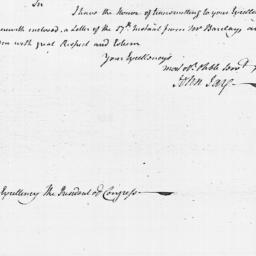 Sir
I have the Honor of transmitting to your Excellen
herewith enclosed, a Letter of the 17th Instant from Mr Barclay an
am with great Respect and Esteem
Your Excellency's
most obt. & hble Servt
John Jay
Excellency The President of Congress